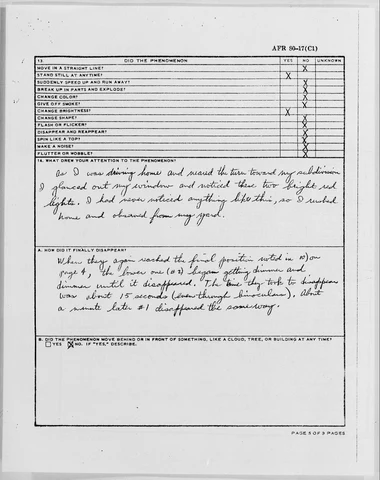 AFR 80-17(C1)
13. DID THE PHENOMENON YES NO UNKNOWN
MOVE IN A STRAIGHT LINE? X
STAND STILL AT ANYTIME? X
SUDDENLY SPEED UP AND RUN AWAY? X
BREAK UP IN PARTS AND EXPLODE? X
CHANGE COLOR? X
GIVE OFF SMOKE? X
CHANGE BRIGHTNESS? X
CHANGE SHAPE? X
FLASH OR FLICKER? X
DISAPPEAR AND REAPPEAR? X
SPIN LIKE A TOP? X
MAKE A NOISE? X
FLUTTER OR WOBBLE? X
14. WHAT DREW YOUR ATTENTION TO THE PHENOMENON?
As I was driving home and neared the turn toward my subdivision
I glanced out my window and noticed these two bright red
lights. I had never noticed anything like this, so I rushed
home and observed from my yard.
A. HOW DID IT FINALLY DISAPPEAR?
When they again reached the final position noted in 10) on
page 4, the lower one (#2) began getting dimmer and
dimmer until it disappeared. The time they took to disappear
was about 15 seconds (even through binoculars). About
a minute later #1 disappeared the same way.
B. DID THE PHENOMENON MOVE BEHIND OR IN FRONT OF SOMETHING, LIKE A CLOUD, TREE, OR BUILDING AT ANY TIME?
YES X NO. IF "YES," DESCRIBE.
PAGE 5 OF 9 PAGES